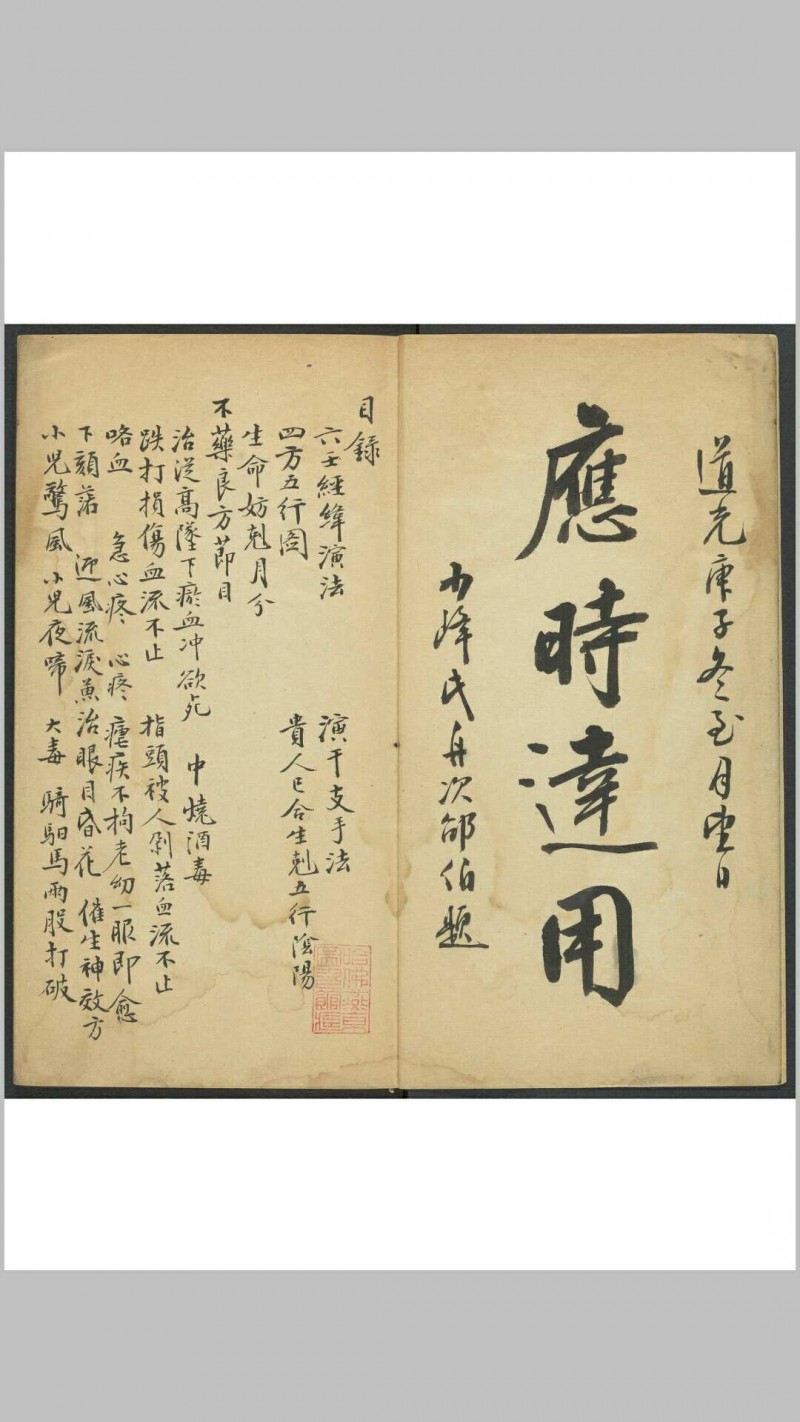 道光庚子冬至月望日
應時達用
少峰氏舟次邰伯題
目錄
六壬經緯演法 演干支手法
四方五行圖 貴人已合生剋五行陰陽
生命妨剋月分
不藥良方節目
治從高墜下瘀血冲欲死 中燒酒毒
跌打損傷血流不止 指頭被人剁落血流不止
咯血 急心疼 心疼 瘧疾不拘老幼一服即愈
下頦落 迎風流淚兼治眼目昏花 催生神效方
小兒驚風 小兒夜啼 大毒 騎馹馬兩股打破
哈佛燕京圖書館